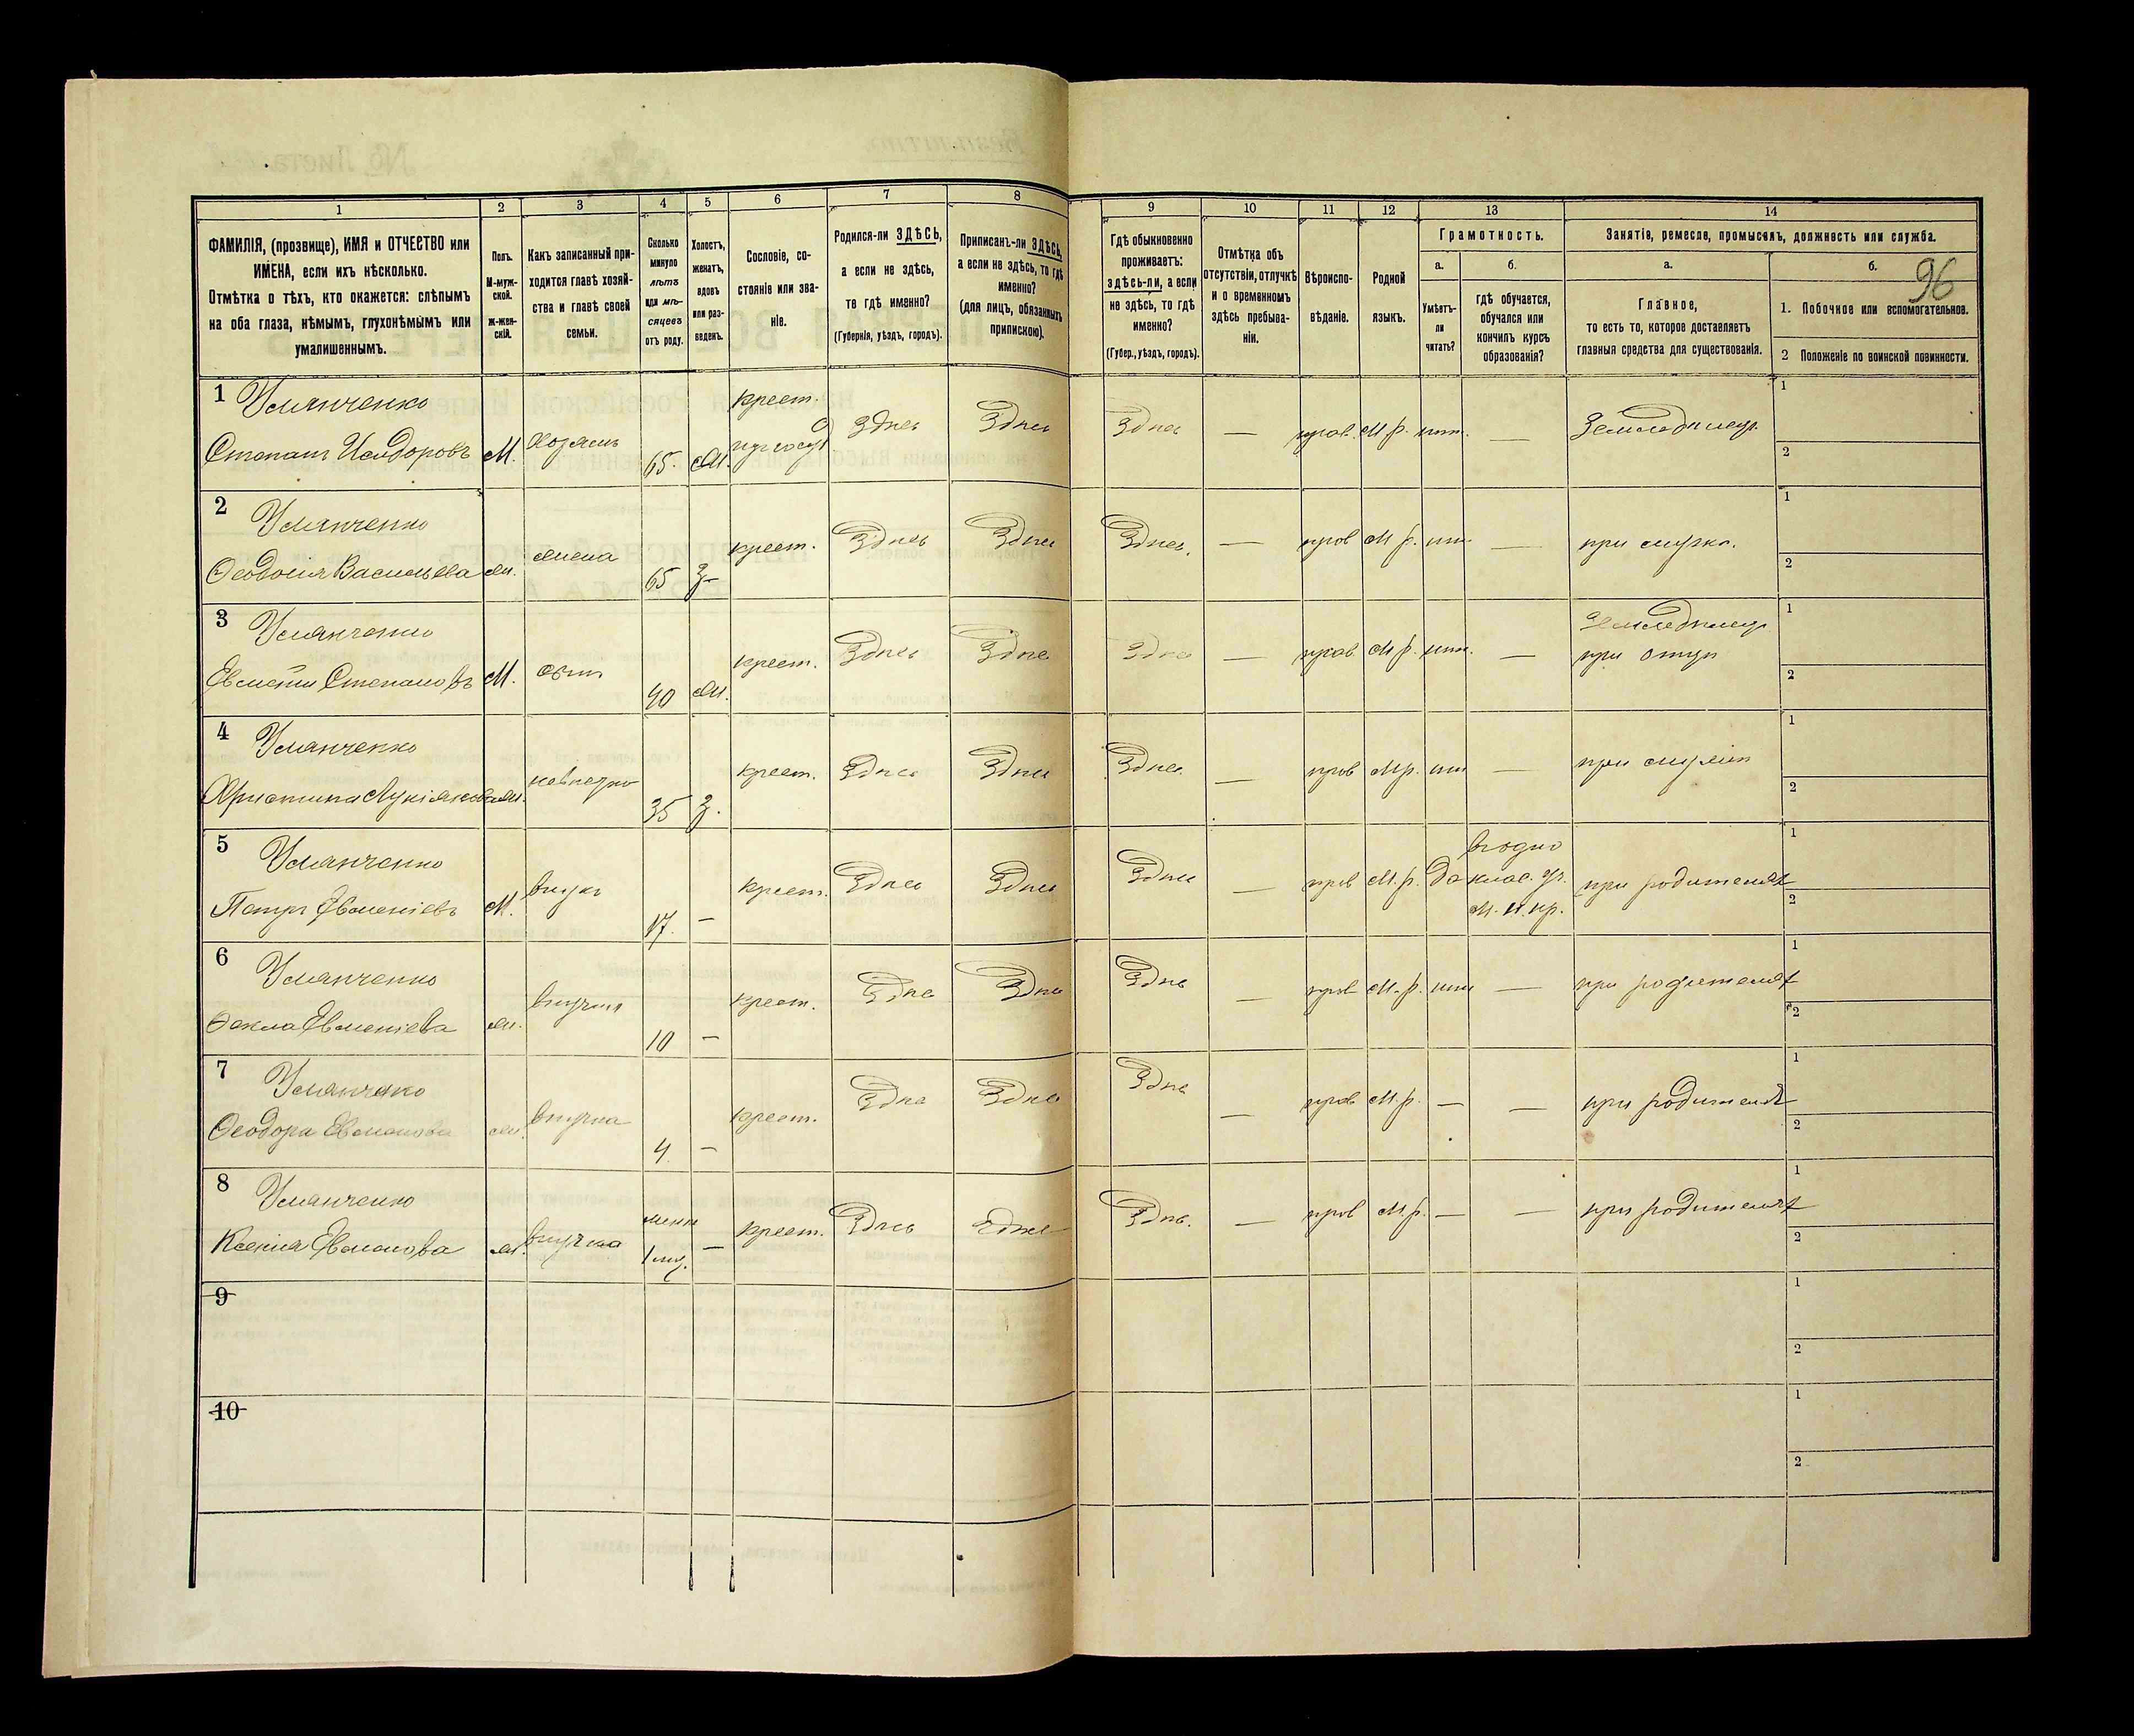 96
1 2 3 4 5 6 7 8 9 10 11 12 13 14
ФАМИЛІЯ, (прозвище), ИМЯ и ОТЧЕСТВО или
ИМЕНА, если ихъ нѣсколько.
Отмѣтка о тѣхъ, кто окажется: слѣпымъ
на оба глаза, нѣмымъ, глухонѣмымъ или
умалишеннымъ.
Полъ.
М-муж-
ской.
ж-жен-
скій.
Какъ записанный при-
ходится главѣ хозяй-
ства и главѣ своей
семьи.
Сколько
минуло
лѣтъ
или мѣ-
сяцевъ
отъ роду.
Холостъ,
женатъ,
вдовъ
или раз-
веденъ.
Сословіе, со-
стояніе или зва-
ніе.
Родился-ли ЗДѢСЬ,
а если не здѣсь,
то гдѣ именно?
(Губернія, уѣздъ, городъ).
Приписанъ-ли ЗДѢСЬ,
а если не здѣсь, то гдѣ
именно?
(для лицъ, обязанныхъ
припискою).
Гдѣ обыкновенно
проживаетъ:
здѣсь-ли, а если
не здѣсь, то гдѣ
именно?
(Губер., уѣздъ, городъ).
Отмѣтка объ
отсутствіи, отлучкѣ
и о временномъ
здѣсь пребыва-
ніи.
Вѣроиспо-
вѣданіе.
Родной
языкъ.
Грамотность.
а.
Умѣетъ-
ли
читать?
б.
гдѣ обучается,
обучался или
кончилъ курсъ
образованія?
Занятіе, ремесло, промыселъ, должность или служба.
а.
Главное,
то есть то, которое доставляетъ
главныя средства для существованія.
б.
1. Побочное или вспомогательное.
2 Положеніе по воинской повинности.
1 Усманченко крест. 1
Степанъ Исидоровъ М. хозяинъ 65. Ж. Здѣсь Здѣсь Здѣсь — прав. М. р. нѣтъ. — Земледѣлецъ 2
2 Усманченко 1
Ѳеодосія Васильева ж. жена 65 З- крест. Здѣсь Здѣсь Здѣсь. — прав М р. нѣтъ — при мужѣ. 2
3 Усманченко Земледѣлецъ 1
Евменій Степановъ М. сынъ 40 Ж. крест. Здѣсь Здѣсь Здѣсь — прав М р. нѣтъ. — при отцѣ 2
4 Усманченко 1
Христина Лукіянова ж. невѣстка 35 З. крест. Здѣсь Здѣсь Здѣсь — прав М р. нѣтъ — при мужѣ 2
5 Усманченко въ одно 1
Петръ Евменіевъ М. внукъ 17. — крест. Здѣсь Здѣсь Здѣсь — прав М. р. Да клас. уч. при родителяхъ 2
М. Н. пр.
6 Усманченко 1
Ѳекла Евменіева ж. внучка 10 — крест. Здѣсь Здѣсь Здѣсь — прав М. р. нѣтъ — при родителяхъ 2
7 Усманченко 1
Ѳеодора Евменова ж. внучка 4 — крест. Здѣсь Здѣсь Здѣсь — прав М. р. — — при родителяхъ 2
8 Усманченко менѣ 1
Ксенія Евменова ж. внучка 1 мѣс. — крест. Здѣсь Здѣсь Здѣсь. — прав М. р. — — при родителяхъ 2
9 1
2
10 1
2